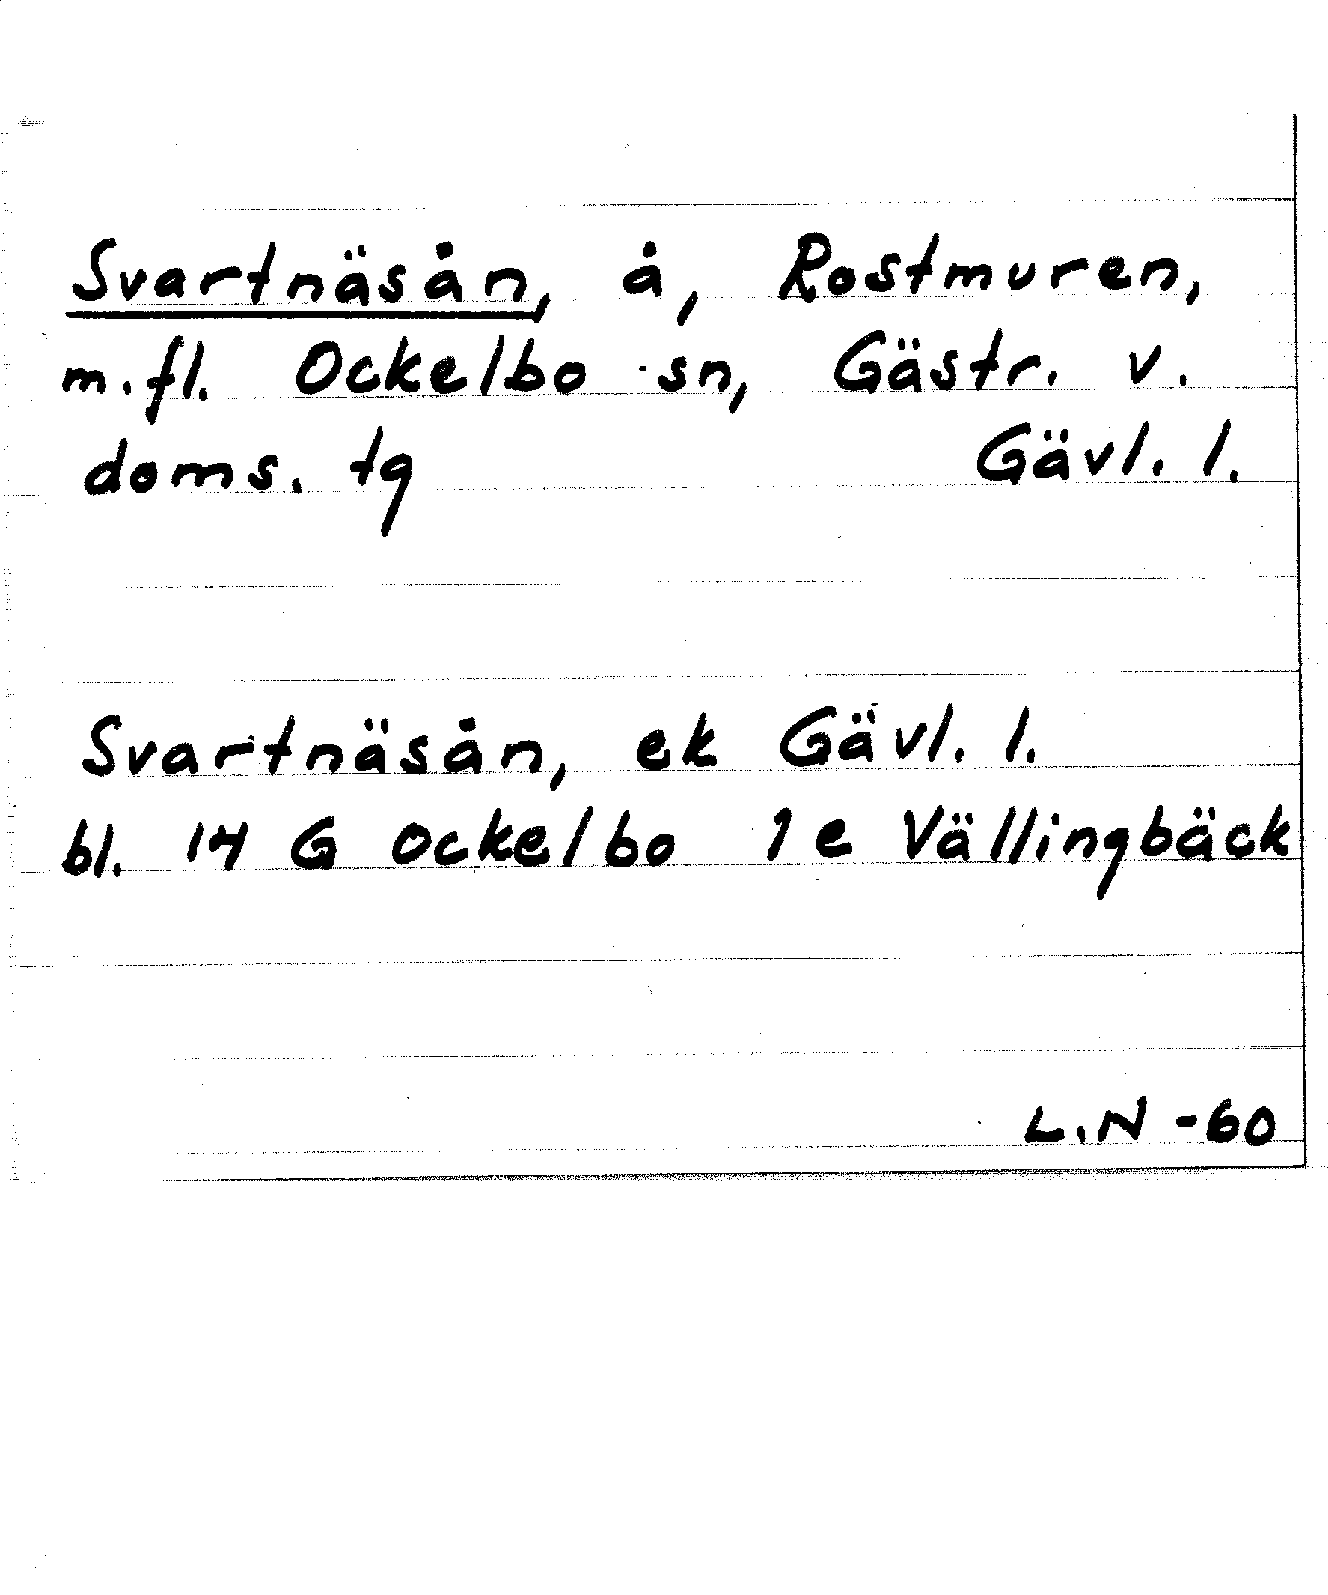 Svartnäsån, å, Rostmuren,
m.fl. Ockelbo sn, Gästr. v.
doms. tg Gävl. l.
Svartnäsån, ek Gävl. l.
bl. 14 G Ockelbo 1 e Vällingbäck
L.N -60